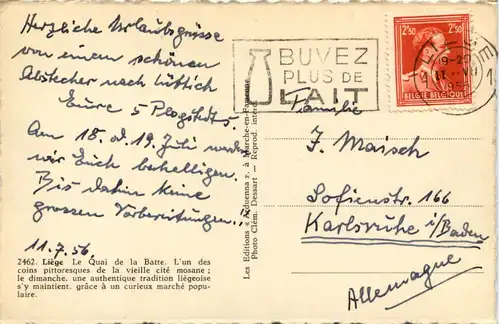 Herzliche Urlaubsgrüsse
von einem schönen
Abstecher nach Lüttich
Eure 5
Am 18. od. 19. Juli werden
wir Euch behelligen.
Bis dahin keine
grossen Vorbereitungen.
11.7.56.
2462. Liège Le Quai de la Batte. L'un des
coins pittoresques de la vieille cité mosane ;
le dimanche, une authentique tradition liégeoise
s'y maintient, grâce à un curieux marché popu-
laire.
Photo Clém. Dessart - Reprod. interd.
BUVEZ
PLUS DE
LAIT
2F50 2F50
BELGIE BELGIQUE
Familie
J. Maisch
Sofienstr. 166
Karlsruhe i/Baden
Allemagne